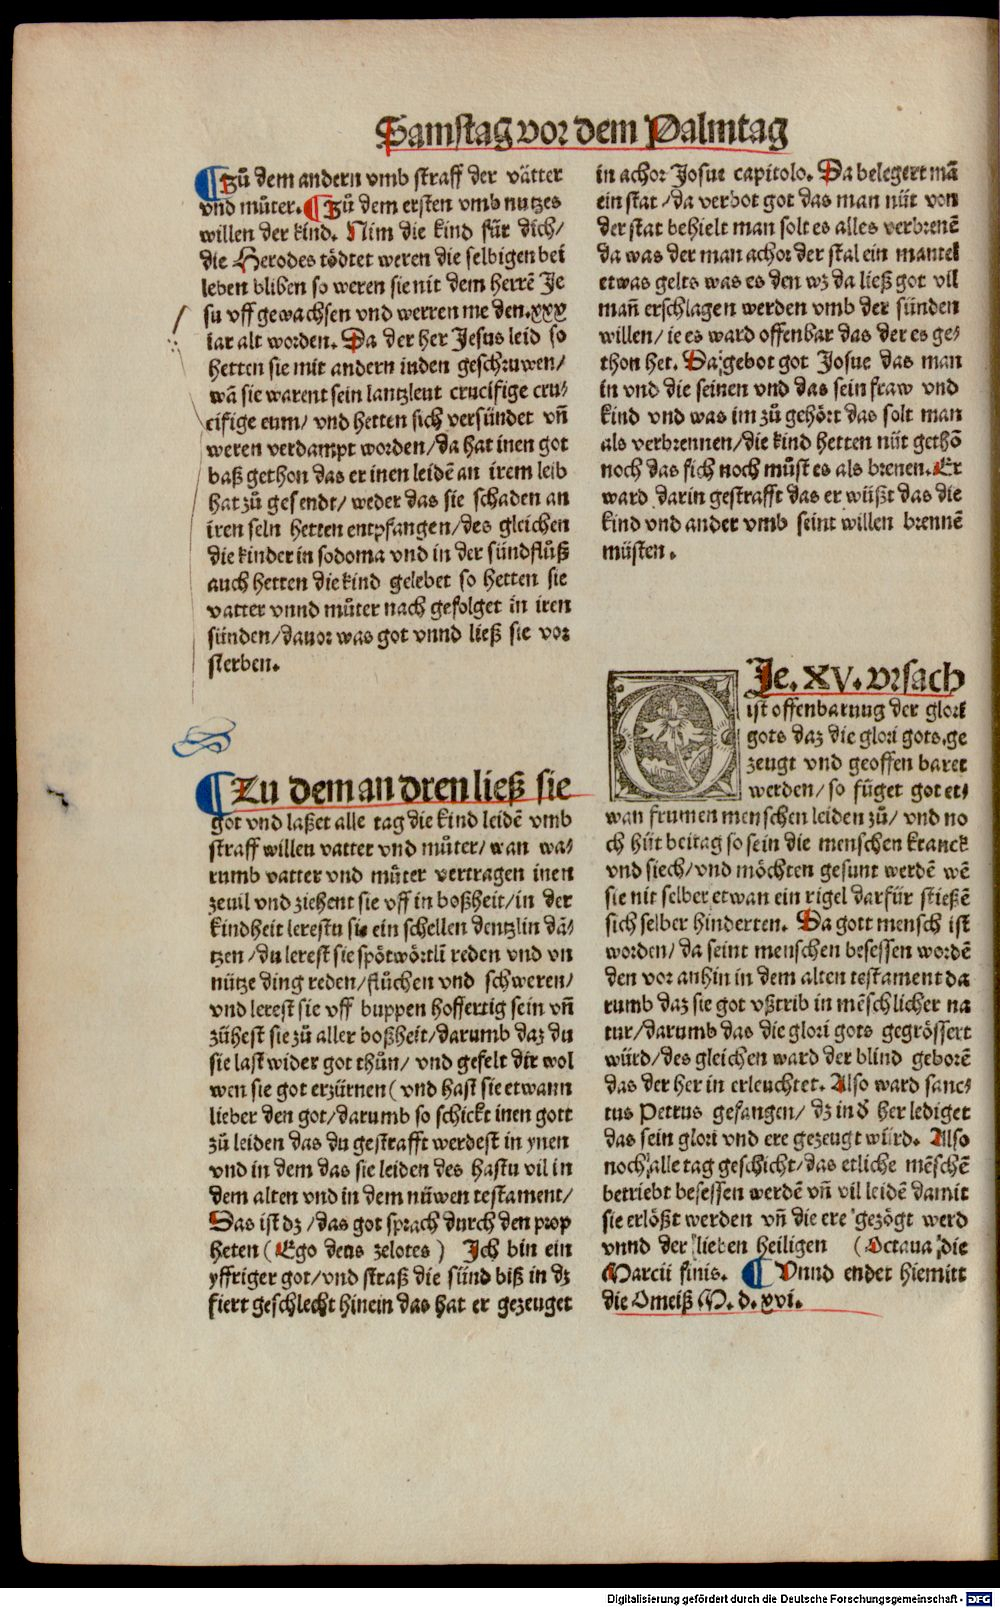 Samstag vor dem Palmtag
¶ Zů dem andern vmb straff der vätter
vnd můter. ¶ Zů dem ersten vmb nutzes
willen der kind. Nim die kind für dich/
die Herodes tödtet weren die selbigen bei
leben bliben so weren sie nit dem herrē Je
su vff gewachsen vnd werren me den .xxx
iar alt worden. Da der her Jesus leid so
hetten sie mit andern inden geschruwen/
wā sie warent sein lantzleut crucifige cru⸗
cifige eum/ vnd hetten sich versündet vñ
weren verdampt worden/da hat inen got
baß gethon das er inen leidē an irem leib
hat zů gesendt/ weder das sie schaden an
iren seln hetten entpfangen/des gleichen
die kinder in sodoma vnd in der sündflůß
auch hetten die kind gelebet so hetten sie
vatter vnnd můter nach gefolget in iren
sünden/dauor was got vnnd ließ sie vor
sterben.
¶ Zu dem an dren ließ sie
got vnd laßet alle tag die kind leidē vmb
straff willen vatter vnd můter/ wan wa⸗
rumb vatter vnd můter vertragen inen
zeuil vnd ziehent sie vff in boßheit/in der
kindheit lerestu sie ein schellen dentzlin dā⸗
tzen/du lerest sie spötwörtli reden vnd vn
nütze ding reden/flůchen vnd schweren/
vnd lerest sie vff buppen hoffertig sein vñ
zühest sie zů aller boßheit/darumb daz du
sie last wider got thůn/ vnd gefelt dir wol
wen sie got erzürnen (vnd hast sie etwann
lieber den got/darumb so schickt inen gott
zů leiden das du gestrafft werdest in ynen
vnd in dem das sie leiden des hastu vil in
dem alten vnd in dem nüwen testament/
Das ist dz/das got sprach durch den prop
heten (Ego deus zelotes) Ich bin ein
yffriger got/vnd straß die sünd biß in dz
fiert geschlecht hinein das hat er gezeuget
in achor Josue capitolo. Da belegert mā
ein stat/da verbot got das man nüt von
der stat behielt man solt es alles verbrenē
da was der man achor der stal ein mantel
etwas gelts was es den wz da ließ got vil
mañ erschlagen werden vmb der sünden
willen/ ie es ward offenbar das der es ge⸗
thon het. Da gebot got Josue das man
in vnd die seinen vnd das sein fraw vnd
kind vnd was im zů gehört das solt man
als verbrennen/die kind hetten nüt gethō
noch das sich noch můst es als brenen. Er
ward darin gestrafft das er wüßt das die
kind vnd ander vmb seint willen brennē
müsten.
DJe. XV. vrsach
ist offenbarung der glori
gots daz die glori gots.ge
zeugt vnd geoffen baret
werden/ so füget got et⸗
wan frumen menschen leiden zů/ vnd no
ch hüt beitag so sein die menschen kranck
vnd siech/vnd möchten gesunt werdē wē
sie nit selber etwan ein rigel darfür stießē
sich selber hinderten. Da gott mensch ist
worden/da seint menschen besessen wordē
den vor anhin in dem alten testament da
rumb daz sie got vßtrib in mēschlicher na
tur/darumb das die glori gots gegrössert
würd/des gleichen ward der blind geborē
das der her in erleuchtet. Also ward sanc⸗
tus Petrus gefangen/ dz in d̓ her lediget
das sein glori vnd ere gezeugt würd. Also
noch alle tag geschicht/das etliche mēschē
betriebt besessen werdē vñ vil leidē damit
sie erlößt werden vñ die ere gezögt werd
vnnd der lieben heiligen (Octaua die
Marcii finis. ¶ Vnnd endet hiemitt
die Omeiß M. d. xvi.
Digitalisierung gefördert durch die Deutsche Forschungsgemeinschaft - DFG